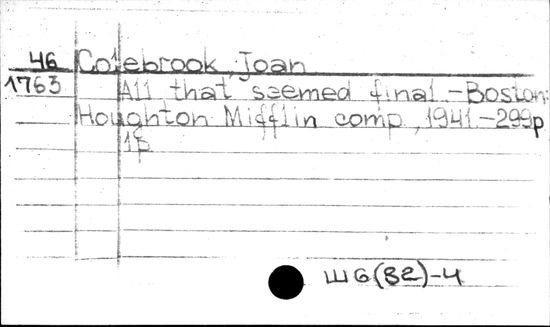 46 Colebrook, Joan
1763 All that seemed final - Boston:
Houghton Mifflin comp., 1941. - 299p
1р.
Ш6(82)-4